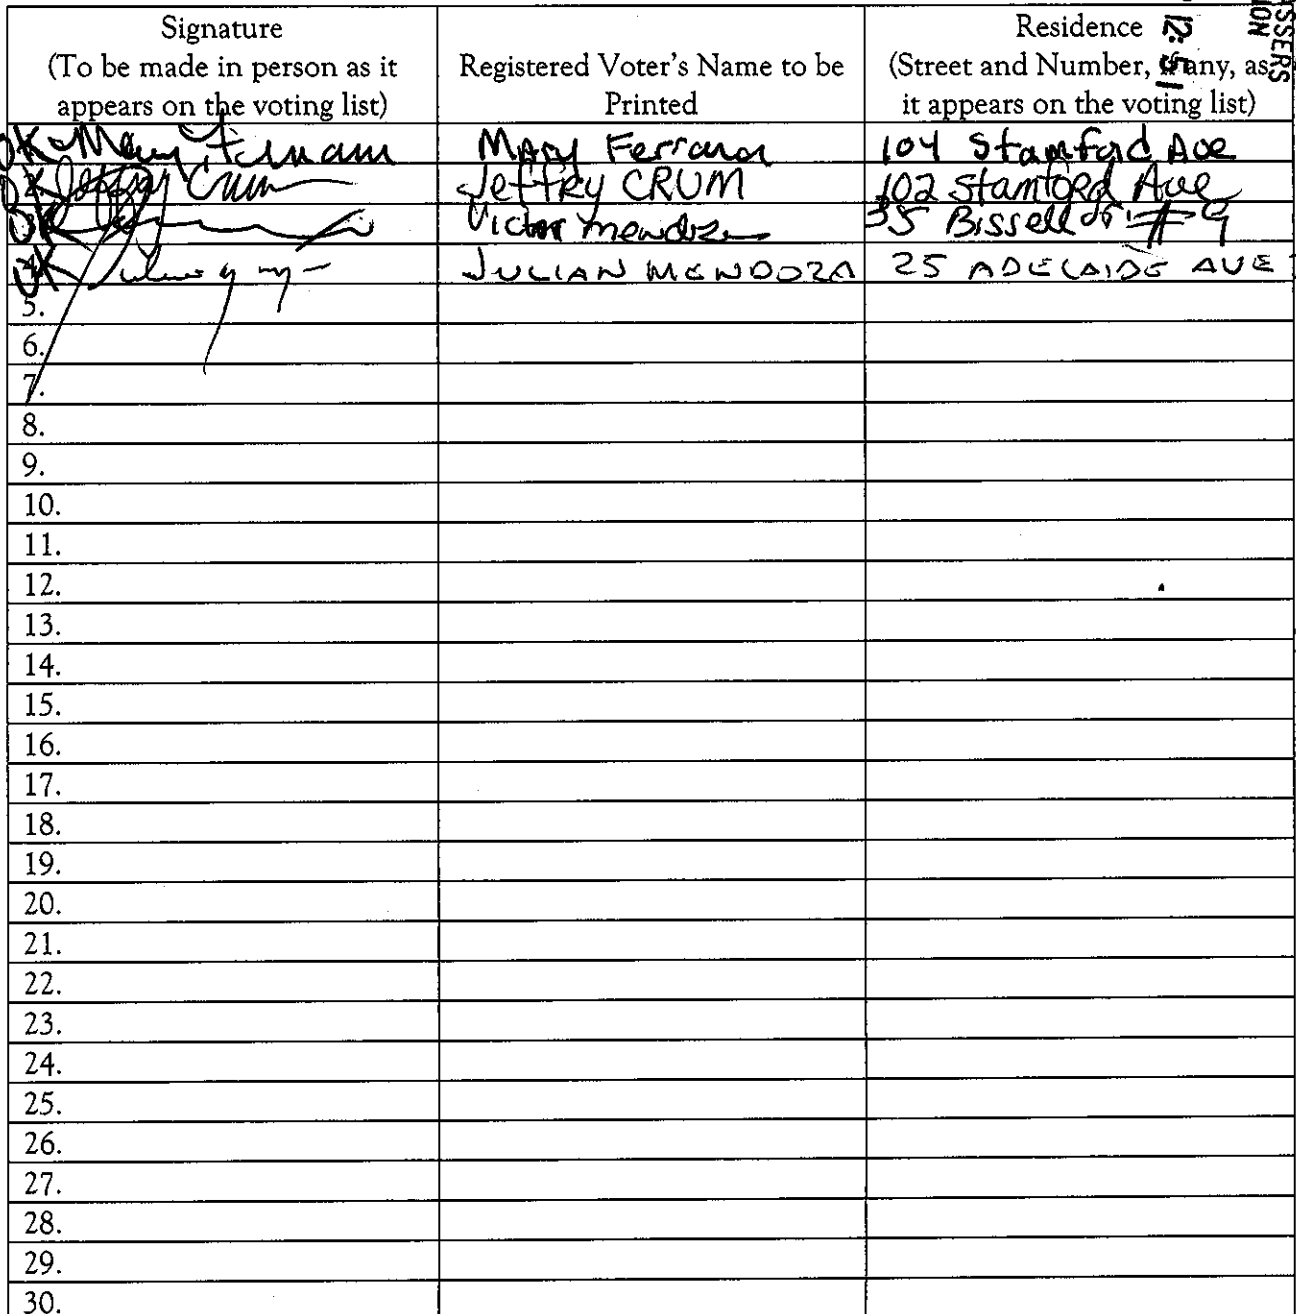 SSERS
ION
12:51
Signature
(To be made in person as it
appears on the voting list)
Registered Voter's Name to be
Printed
Residence
(Street and Number, if any, as
it appears on the voting list)
OK Mary Ferrara Mary Ferrara 104 Stamford Ave
OK Jeffry Crum Jeffry CRUM 102 Stamford Ave
OK Victor 35 Bissell St #9
OK JULIAN MENDOZA 25 ADELAIDE AVE
5.
6.
7.
8.
9.
10.
11.
12.
13.
14.
15.
16.
17.
18.
19.
20.
21.
22.
23.
24.
25.
26.
27.
28.
29.
30.